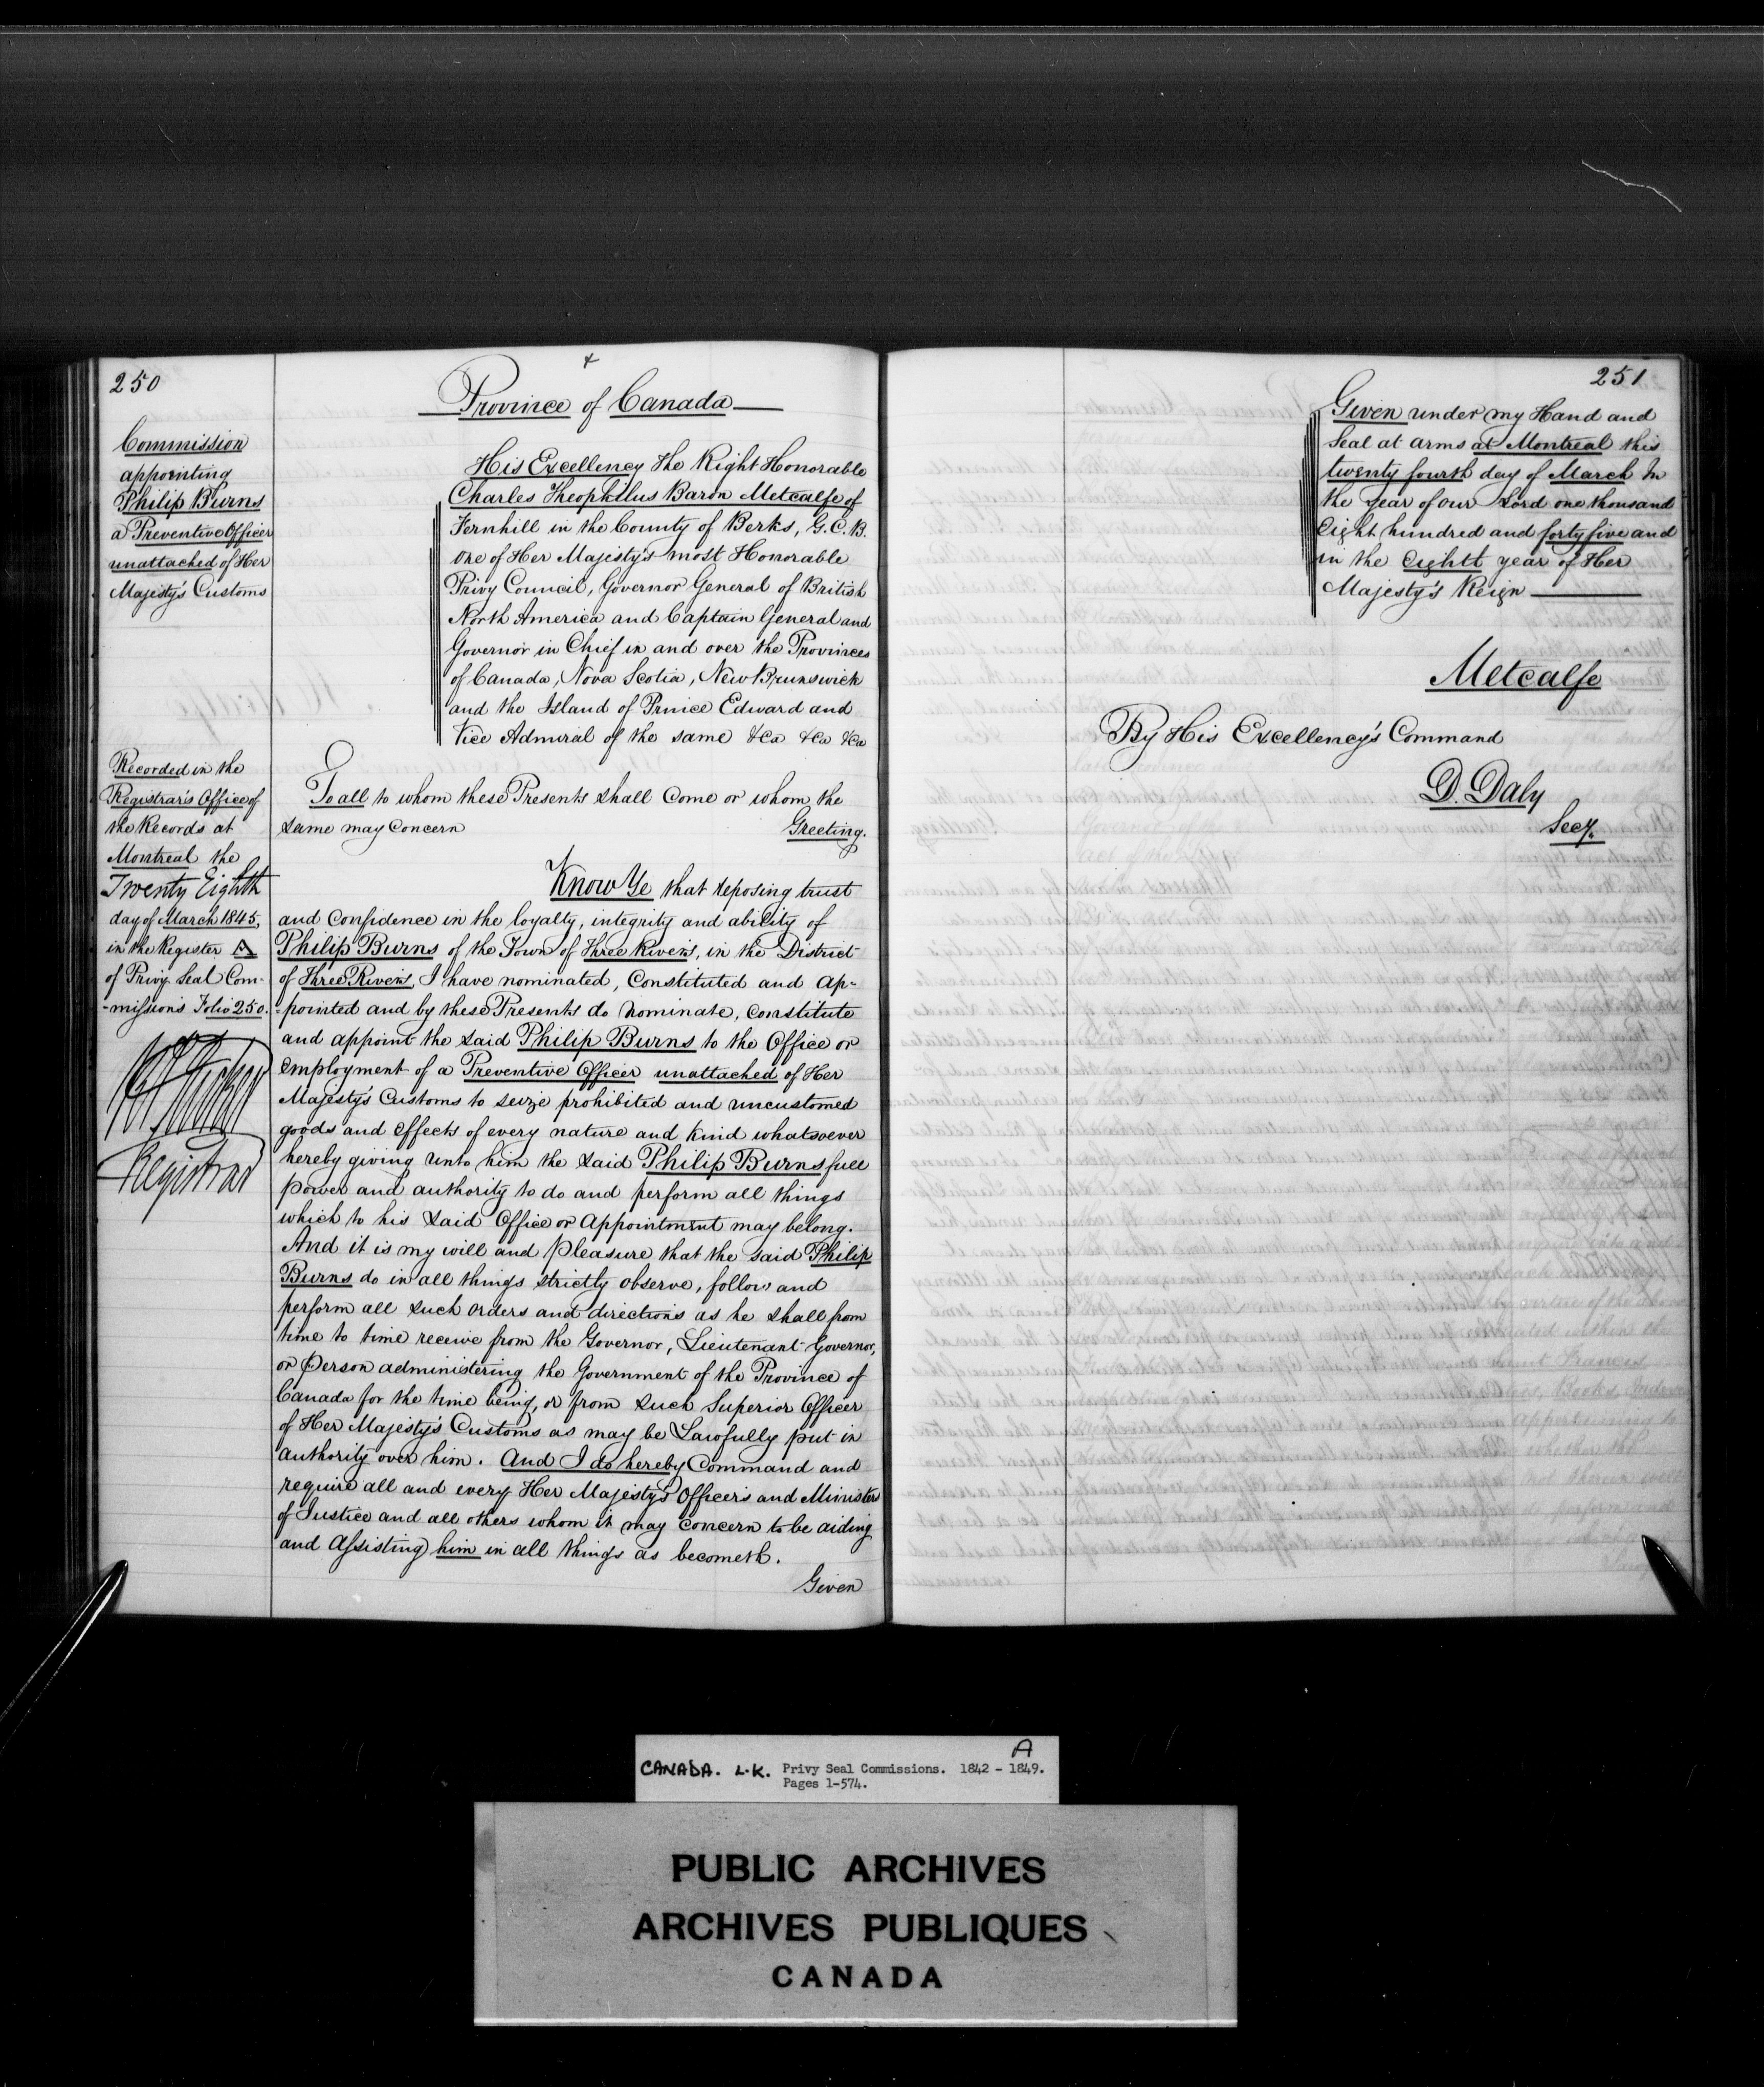 250
Commission
appointing
Philip Burns
a Preventive Officer
unattached of Her
Majesty's Customs
Recorded in the
Registrar's Office of
the Records at
Montreal the
Twenty Eighth
day of March 1845,
in the Register A
of Privy Seal Com-
-missions Folio 250.
Registrar
Province of Canada
His Excellency The Right Honorable
Charles Theophilus Baron Metcalfe of
Fernhill in the County of Berks, G.C.B.
one of Her Majesty's most Honorable
Privy Council, Governor General of British
North America and Captain General and
Governor in Chief in and over the Provinces
of Canada, Nova Scotia, New Brunswick
and the Island of Prince Edward and
Vice Admiral of the same &ca &ca &ca
To all to whom these Presents shall Come or whom the
same may Concern Greeting.
Know Ye that reposing trust
and Confidence in the loyalty, integrity and ability of
Philip Burns of the Town of Three Rivers, in the District
of Three Rivers, I have nominated, Constituted and Ap=
=pointed and by these Presents do nominate, constitute
and appoint the said Philip Burns to the Office or
employment of a Preventive Officer unattached of Her
Majesty's Customs to seize prohibited and uncustomed
goods and effects of every nature and kind whatsoever
hereby giving unto him the said Philip Burns full
power and authority to do and perform all things
which to his said Office or Appointment may belong.
And it is my will and pleasure that the said Philip
Burns do in all things strictly observe, follow and
perform all such orders and directions as he shall from
time to time receive from the Governor, Lieutenant Governor,
or Person administering the Government of the Province of
Canada for the time being, or from such Superior Officer
of Her Majesty's Customs as may be Lawfully put in
authority over him. And I do hereby Command and
require all and every Her Majesty's Officers and Ministers
of Justice and all others whom it may Concern to be aiding
and Assisting him in all things as becometh.
Given
251
Given under my Hand and
Seal at arms at Montreal this
twenty fourth day of March In
the year of our Lord one thousand
Eight hundred and forty five and
in the eightt year of Her
Majesty's Reign
Metcalfe
By His Excellency's Command
D. Daly
Secy.
A
CANADA. L.K. Privy Seal Commissions. 1842 - 1849.
Pages 1-574.
PUBLIC ARCHIVES
ARCHIVES PUBLIQUES
CANADA